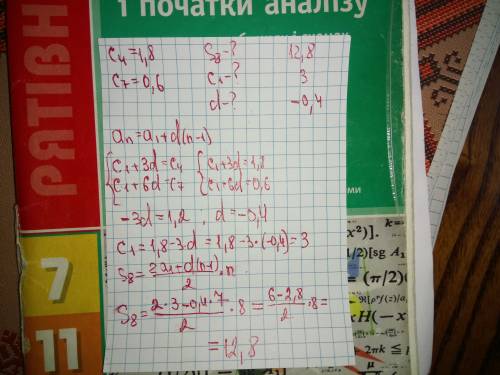 1 початки аналізу
РЯТІВН
C₄=1,8 S₈-? 12,8
C₇=0,6 C₁-? 3
d-? -0,4
aₙ=a₁+d(n-1)
{C₁+3d=C₄ {C₁+3d=1,8
{C₁+6d=C₇ {C₁+6d=0,6
-3d=1,2, d=-0,4
C₁=1,8-3d=1,8-3·(-0,4)=3
S₈=2a₁+d(n-1)/2·n
S₈=2·3-0,4·7/2·8=6-2,8/2·8=
=12,8
7
11